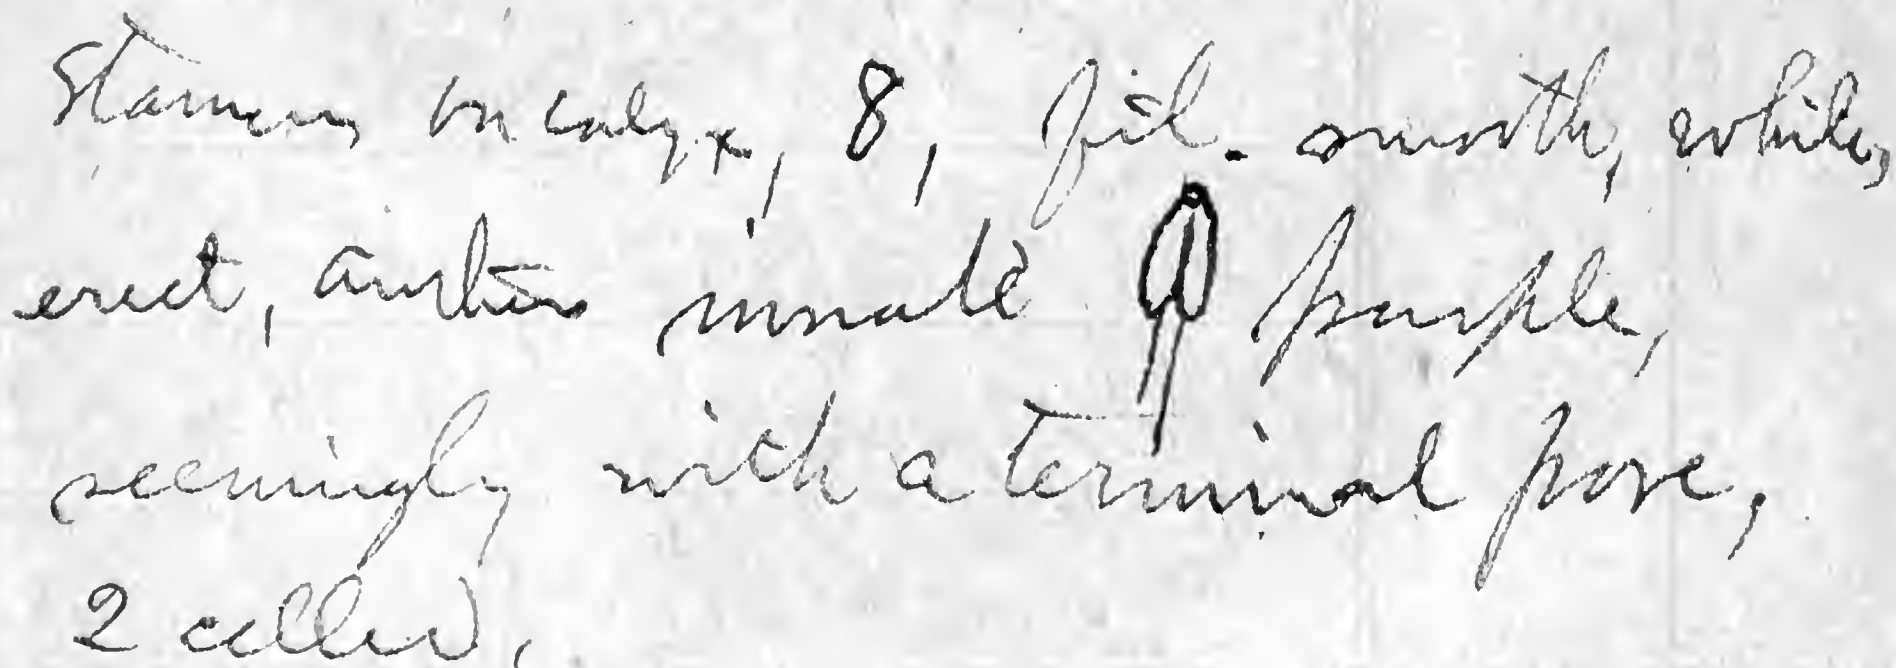 Stamens on calyx, 8, fil. smooth, white,
erect, anthers innate purple,
seemingly with a terminal pore,
2 celled.